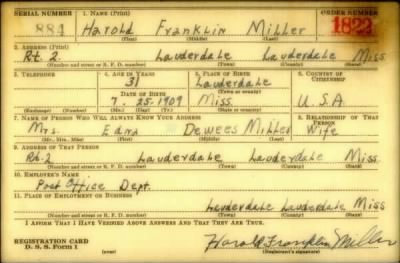 SERIAL NUMBER 1. NAME (Print) ORDER NUMBER
884 Harold Franklin Miller 1822
(First) (Middle) (Last)
2. ADDRESS (Print)
Rt. 2. Lauderdale Lauderdale Miss
(Number and street or R. F. D. number) (Town) (County) (State)
3. TELEPHONE 4. AGE IN YEARS 5. PLACE OF BIRTH 6. COUNTRY OF CITIZENSHIP
31 Lauderdale
DATE OF BIRTH (Town or county)
7. 25-1909 Miss. U.S.A
(Exchange) (Number) (Mo.) (Day) (Yr.) (State or country)
7. NAME OF PERSON WHO WILL ALWAYS KNOW YOUR ADDRESS 8. RELATIONSHIP OF THAT PERSON
Mrs. Edna Dewees Miller Wife
(Mr., Mrs., Miss) (First) (Middle) (Last)
9. ADDRESS OF THAT PERSON
Rt-2 Lauderdale Lauderdale Miss
(Number and street or R. F. D. number) (Town) (County) (State)
10. EMPLOYER'S NAME
Post Office Dept.
11. PLACE OF EMPLOYMENT OR BUSINESS
Lauderdale Lauderdale Miss
(Number and street or R. F. D. number) (Town) (County) (State)
I AFFIRM THAT I HAVE VERIFIED ABOVE ANSWERS AND THAT THEY ARE TRUE.
REGISTRATION CARD
D. S. S. Form 1 (over) Harold Franklin Miller
(Registrant's signature)